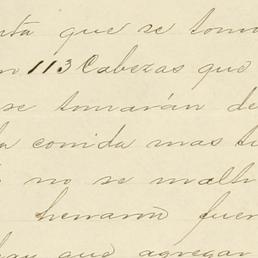 que se toma
113 Cabezas que
se tomarán de
la comida mas
no se malt
hermano fuer
hay que agregar